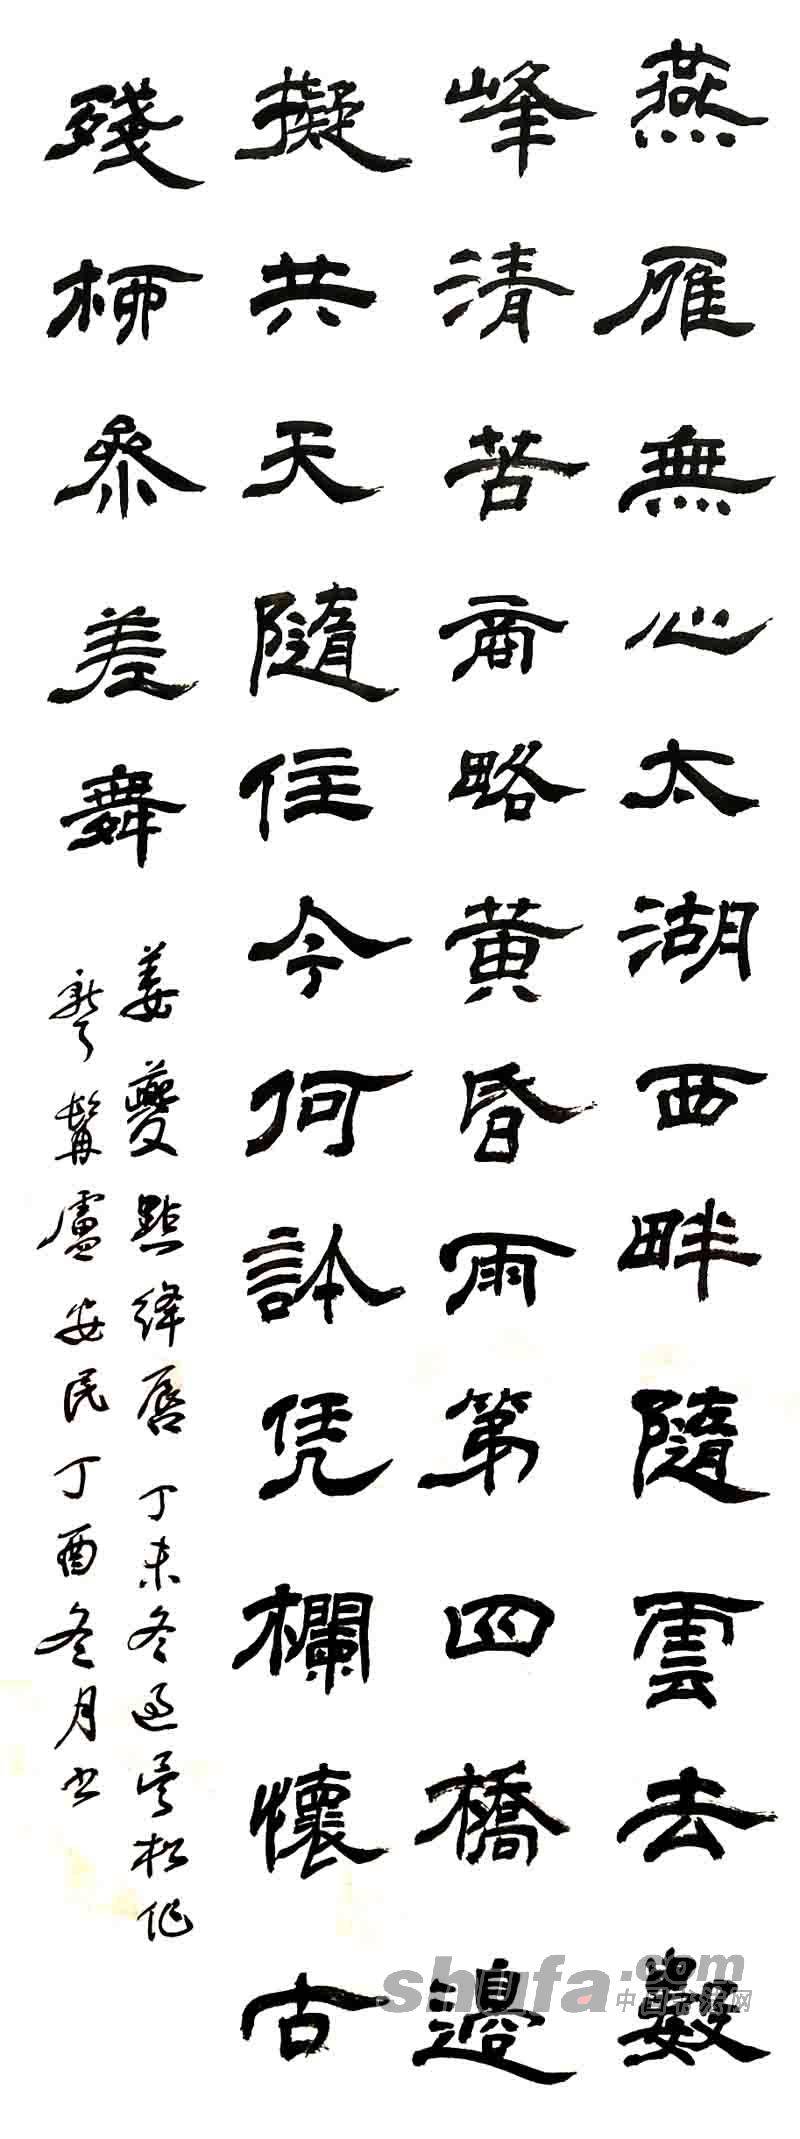 燕雁無心太湖西畔隨雲去數
峰清苦商略黄昏雨第四橋邊
擬共天隨住今何許凭欄懷古
殘柳參差舞
姜夔點绛唇丁未冬過吴松作
盧安民丁酉冬月书
shufa.com
中国书法网